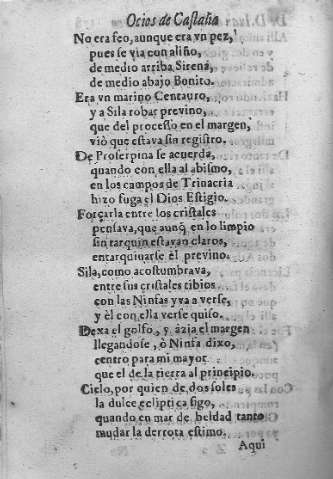 Ocios de Castalia
No era feo, aunque era vn pez,
pues se via con aliño,
de medio arriba Sirena,
de medio abajo Bonito.
Era vn marino Centauro,
y a Sila robar previno,
que del processo en el margen,
viò que estava sin registro.
De Proserpina se acuerda,
quando con ella al abismo,
en los campos de Trinacria
hizo fuga el Dios Estigio.
Forçarla entre los cristales
pensava, que aunq̃ en lo limpio
sin tarquin estavan claros,
entarquinarse èl previno.
Sila, como acostumbrava,
entre sus cristales tibios
con las Ninfas yva a verse,
y èl con ella verse quiso.
Dexa el golfo, y àzia el margen
llegandose, ò Ninfa dixo,
centro para mi mayor
que el de la tierra al principio.
Cielo, por quien de dos soles
la dulce ecliptica sigo,
quando en mar de beldad tanto
mudar la derrota estimo.
Aqui